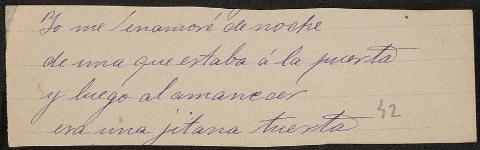 Yo me enamoré de noche
de una que estaba á la puerta
y luego al amanecer
era una jitana tuerta
42